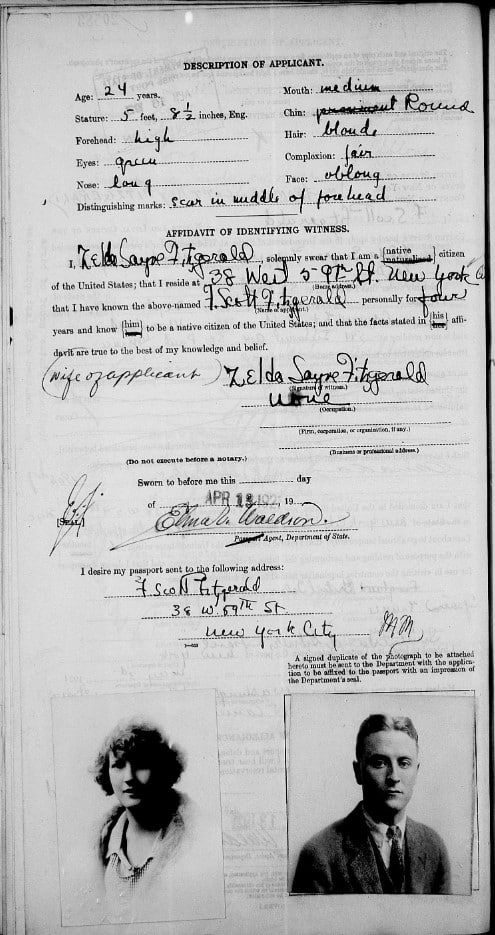 DESCRIPTION OF APPLICANT.
Age: 24 years.
Mouth: medium
Stature: 5 feet, 8 1/2 inches, Eng.
Chin: prominent Round
Forehead: high
Hair: blonde
Eyes: green
Complexion: fair
Nose: long
Face: oblong
Distinguishing marks: scar in middle of forehead
AFFIDAVIT OF IDENTIFYING WITNESS.
I, Zelda Sayre Fitzgerald, solemnly swear that I am a {native naturalized} citizen
of the United States; that I reside at 38 West 59th St. New York
that I have known the above-named F. Scott Fitzgerald personally for four
(Name of applicant.)
years and know {him} to be a native citizen of the United States; and that the facts stated in {his her} affi-
davit are true to the best of my knowledge and belief.
(Wife of applicant) Zelda Sayre Fitzgerald
(Signature of witness.)
None
(Occupation.)
(Firm, corporation, or organization, if any.)
(Business or professional address.)
(Do not execute before a notary.)
Sworn to before me this day
of APR 192 , 19
[SEAL.]
Agent, Department of State.
I desire my passport sent to the following address:
F Scott Fitzgerald
38 W. 59TH St
New York City
A signed duplicate of the photograph to be attached
hereto must be sent to the Department with the applica-
tion to be affixed to the passport with an impression of
the Department's seal.